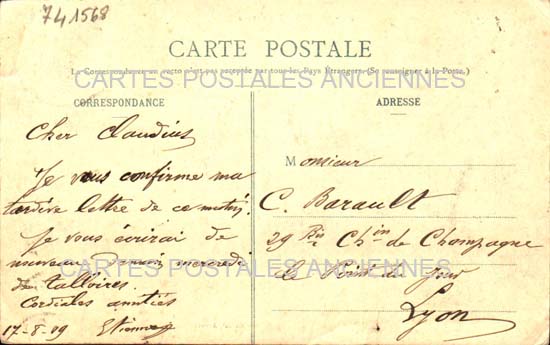 741568
CARTE POSTALE
La Correspondance au recto n'est pas acceptée par tous les Pays Étrangers. (Se renseigner à la Poste.)
CARTES POSTALES ANCIENNES
CORRESPONDANCE
ADRESSE
Cher Claudius
Je vous confirme ma
tardive lettre de ce matin.
Je vous écrirai de
nouveau demain mercredi
de Talloires.
Cordiales amitiés
17-8-09 Etienne
Monsieur
C. Barault
29 Bis Chin de Champagne
le Point du Jour
Lyon
CARTES POSTALES ANCIENNES